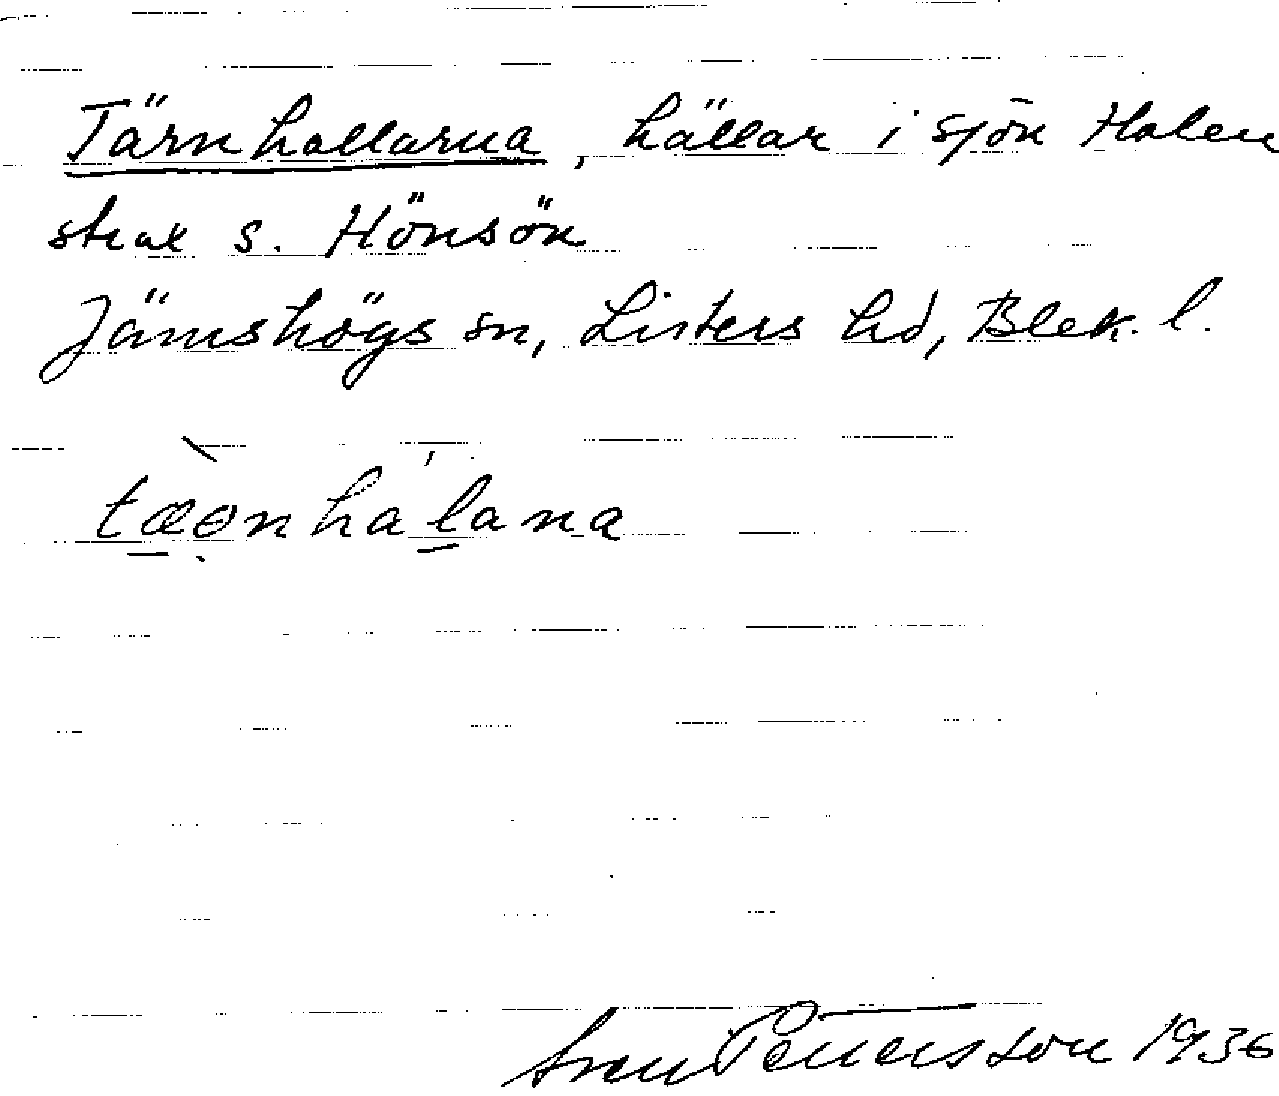 Tärnhallarna, hällar i sjön Halen
strax s. Hönsön
Jämshögs sn, Listers hd, Blek. l.
tæ̠ə̣nhal̠ana
Sven Pettersson 1936